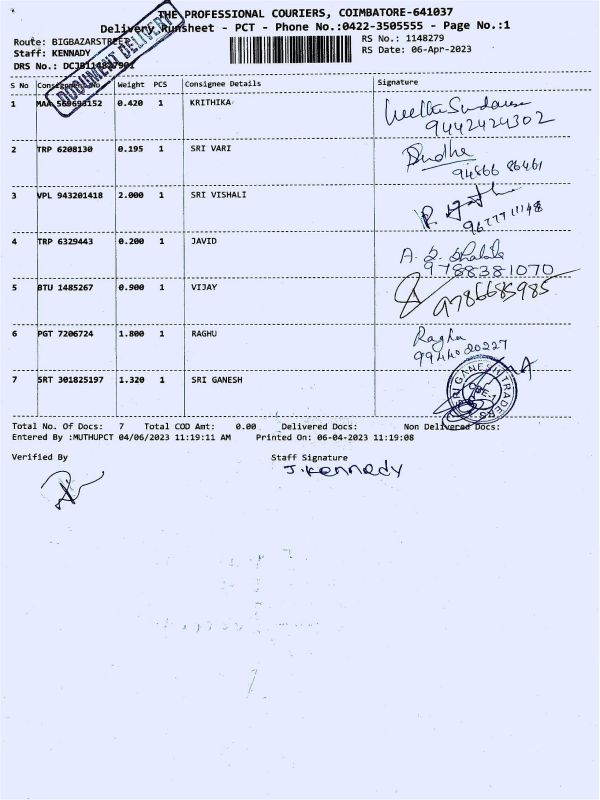 THE PROFESSIONAL COURIERS, COIMBATORE-641037
Delivery Runsheet - PCT - Phone No.:0422-3505555 - Page No.:1
DOCUMENT DELIVERY
Route: BIGBAZARSTREET
RS No.: 1148279
Staff: KENNADY
RS Date: 06-Apr-2023
DRS No.:
S No Consignment No. Weight PCS Consignee Details Signature
1 MAA 569693152 0.420 1 KRITHIKA
9442424302
2 TRP 6208130 0.195 1 SRI VARI Sudha
94866 86461
3 VPL 943201418 2.000 1 SRI VISHALI
4 TRP 6329443 0.200 1 JAVID
9788381070
5 BTU 1485267 0.900 1 VIJAY 9786685985
6 PGT 7206724 1.800 1 RAGHU Raghu
7 SRT 301825197 1.320 1 SRI GANESH SRI GANESH TRADERS CBE-1
Total No. Of Docs: 7 Total COD Amt: 0.00 Delivered Docs: Non Delivered Docs:
Entered By :MUTHUPCT 04/06/2023 11:19:11 AM Printed On: 06-04-2023 11:19:08
Verified By Staff Signature
J. Kennedy